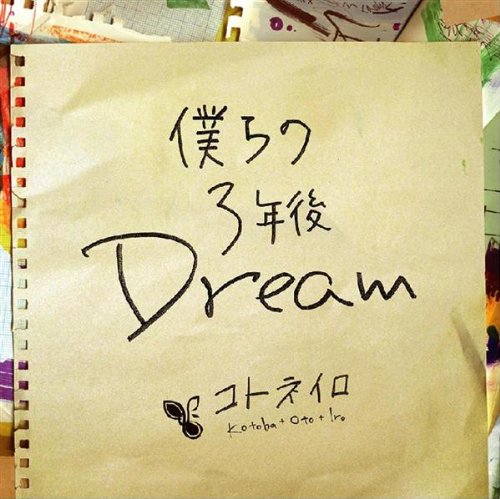 僕らの
3年後
Dream
コトネイロ
Kotoba+Oto+Iro